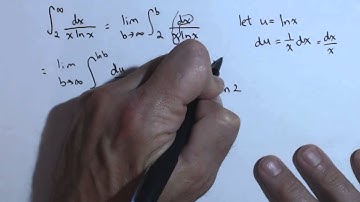 ∫₂^∞ dx/(x ln x) = lim b→∞ ∫₂^b dx/(x ln x) let u = ln x
du = 1/x dx = dx/x
= lim b→∞ ∫^(ln b) du n 2